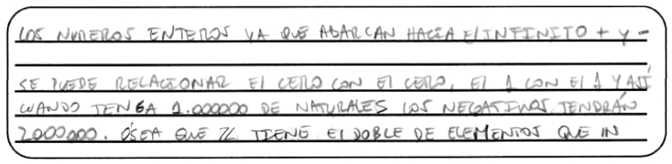 LOS NUMEROS ENTEROS YA QUE ABARCAN HACIA El INFINITO + y -
SE PUEDE RELACIONAR El CERO CON El CERO, El 1 CON El 1 Y ASÍ
CUANDO TENGA 1.000000 DE NATURALES LOS NEGATIVOS TENDRÁN
2000000. ÓSEA QUE ℤ TIENE El DOBLE DE ELEMENTOS QUE IN